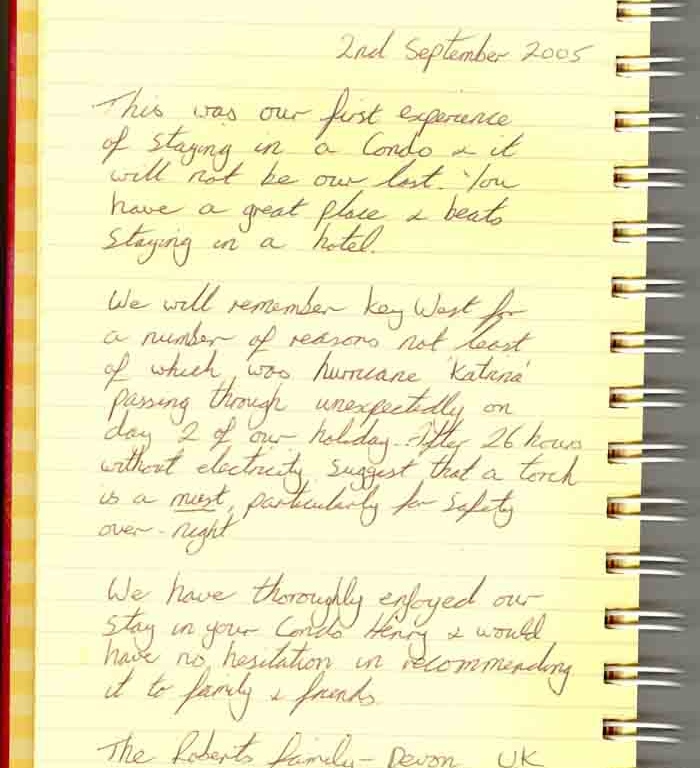 2nd September 2005
This was our first experience
of staying in a Condo & it
will not be our last. You
have a great place & beats
staying in a hotel.
We will remember Key West for
a number of reasons not least
of which was hurricane 'Katrina'
passing through unexpectedly on
day 2 of our holiday. After 26 hours
without electricity suggest that a torch
is a must, particularly for safety
over-night
We have thoroughly enjoyed our
stay in your Condo Henry & would
have no hesitation in recommending
it to family & friends.
The Roberts family - Devon UK